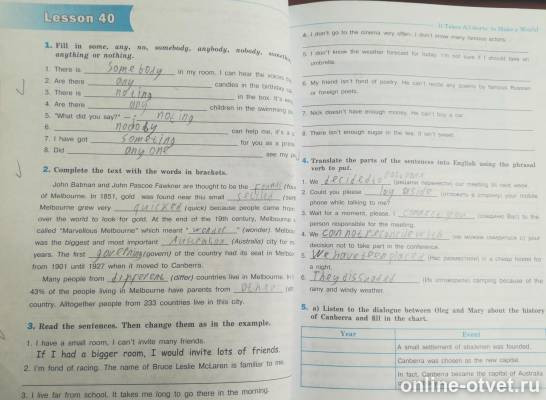 Lesson 40
1. Fill in some, any, no, somebody, anybody, nobody,
anything or nothing.
1. There is somebody in my room. I can hear the voices
2. Are there any candies in the birthday
3. There is noting in the box. It's
4. Are there any children in the swimming
5. "What did you say?" — noting
6. nobody can help me, it's a
7. I have got someting for you as a
8. Did any one see my
2. Complete the text with the words in brackets.
John Batman and John Pascoe Fawkner are thought to be the
of Melbourne. In 1851, gold was found near this small
Melbourne grew very quicked (quick) because people came from
over the world to look for gold. At the end of the 19th century, Melbourne
called "Marvellous Melbourne" which meant " " (wonder). Melbourne
was the biggest and most important Australian (Australia) city for
years. The first governing (govern) of the country had its seat in Melbourne
from 1901 until 1927 when it moved to Canberra.
Many people from different (differ) countries live in Melbourne.
43% of the people living in Melbourne have parents from other
country. Alltogether people from 233 countries live in this city.
3. Read the sentences. Then change them as in the example.
1. I have a small room, I can't invite many friends.
If I had a bigger room, I would invite lots of friends.
2. I'm fond of racing. The name of Bruce Leslie McLaren is familiar to me.
3. I live far from school. It takes me long to go there in the morning.
It Takes All Sorts to Make a World
4. I don't go to the cinema very often. I don't know many famous actors.
5. I don't know the weather forecast for today. I'm not sure if I should take an
umbrella.
6. My friend isn't fond of poetry. He can't recite any poems by famous Russian
or foreign poets.
7. Nick doesn't have enough money. He can't buy a car.
8. There isn't enough sugar in the tea. It isn't sweet.
4. Translate the parts of the sentences into English using the phrasal
verb to put.
1. We decided to (решили перенести) our meeting to next week.
2. Could you please lay aside (отложить в сторону) your mobile
phone while talking to me?
3. Wait for a moment, please. I connect you (соединю Вас) to the
person responsible for the meeting.
4. We can not reconcile with (не можем смириться с) your
decision not to take part in the conference.
5. We have been placed (Нас разместили) in a cheap hostel for
a night.
6. They dissuaded (Их отговорили) camping because of the
rainy and windy weather.
5. a) Listen to the dialogue between Oleg and Mary about the history
of Canberra and fill in the chart.
Year Event
A small settlement of stockmen was founded.
Canberra was chosen as the new capital.
In fact, Canberra became the capital of Australia
online-otvet.ru